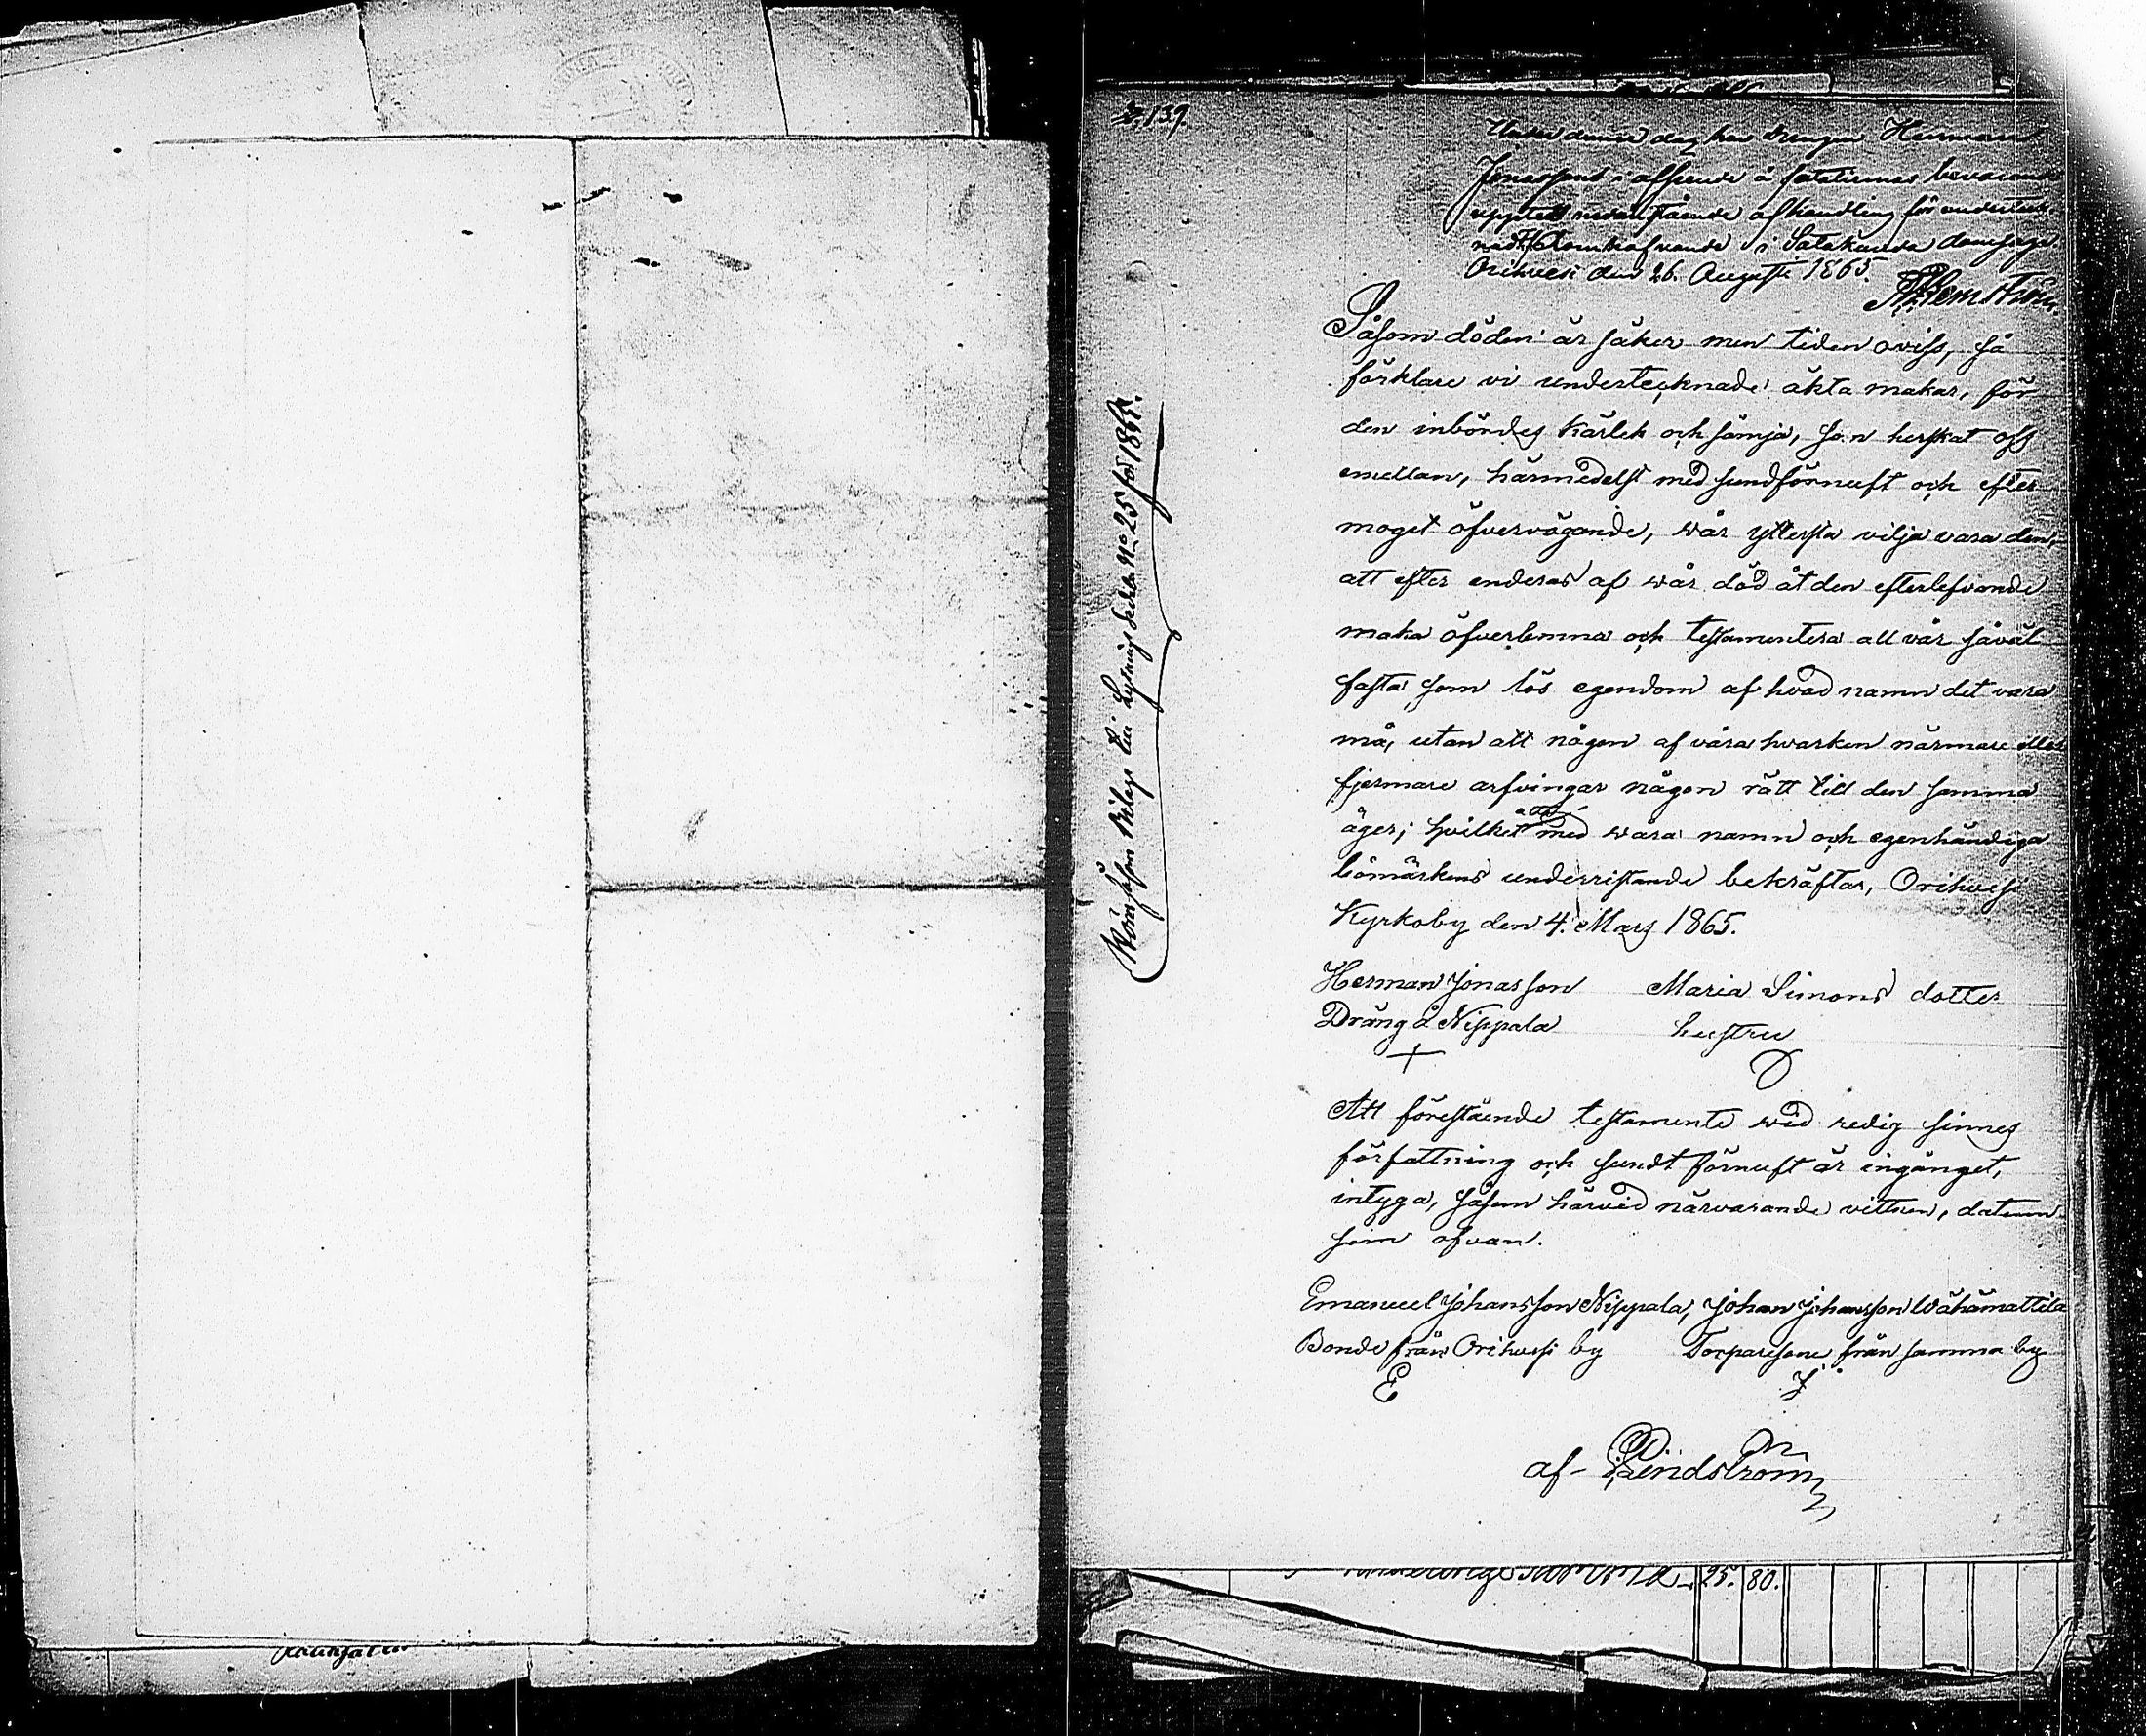 139.
Under denna dag har drengen Herman
Jonasson i afseende å fataliernas bevarande
uppvist nedanstående afhandling för underteck-
nad Domhafvande i Satakunda domsaga.
Orihvesi den 26. Augusti 1865.
Såsom döden är säker men tiden oviss, så
förklare vi undertecknade äkta makar, för
den inbördes kärlek och sämja, som herskat oss
emellan, härmedelst med sundförnuft och efter
moget öfvervägande, wår yttersta vilja vara den,
att efter enderas af wår död åt den efterlefvande
maka öfverlemna och testamentera all vår såväl
fasta som lös egendom af hvad namn det vara
må, utan att någon af våra hvarken närmare eller
fjermare arfvingar någon rätt till den samma
äger; hvilket med wåra namn och egenhändiga
bomärkens underristande bekräftas, Orihvesi
Kyrkoby den 4. Mars 1865.
Herman Jonasson Maria Simons dotter
Dräng å Nippala hustru
Att förestående testamente wid redig sinnes
författning och sundt förnuft är ingånget,
intyga, såsom härvid närvarande vittnen, datum
som ofvan.
Emanuel Johansson Nippala, Johan Johansson Wähämattila
Bonde från Orihvesi by Torpareson från samma by
E J.
af Lindström
N:o 25 för 1865.
25. 80.